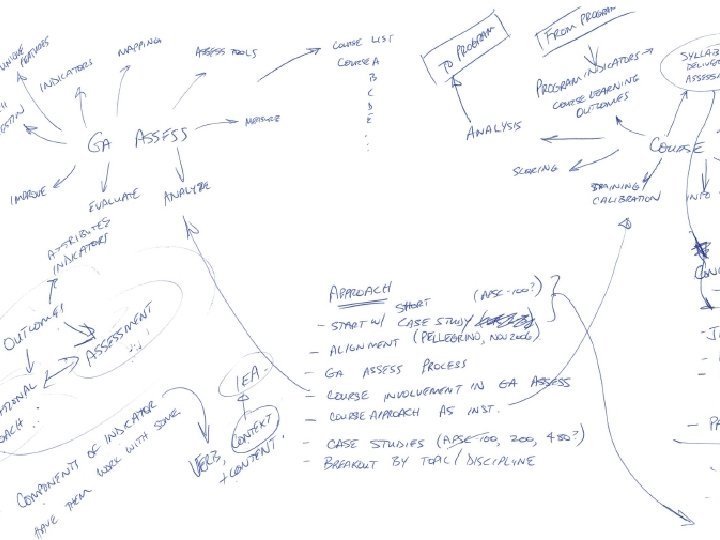 MAPPING
ASSESS TOOLS
INDICATORS
GA ASSESS
MEASURE
IMPROVE
EVALUATE
ANALYZE
COURSE LIST
COURSE A
B
C
D
E
TO PROGRAM
FROM PROGRAM
PROGRAM INDICATORS →
COURSE LEARNING
OUTCOMES
ANALYSIS
COURSE
SCORING
TRAINING
CALIBRATION
INFO
SYLLAB
DELIVER
ASSESSM
ATTRIBUTES
INDICATORS
OUTCOMES
ASSESSMENT
TIONAL
ACH
COMPONENTS OF INDICATOR
HAVE THEM WORK WITH SOME
VERB,
CONTEXT
+ CONTENT.
IEA
APPROACH
SHORT
- START W/ CASE STUDY
(APSC-100?)
- ALIGNMENT (PELLEGRINO, NOV 2006)
- GA ASSESS PROCESS
- COURSE INVOLVEMENT IN GA ASSESS
- COURSE APPROACH AS INST.
- CASE STUDIES (APSC-100, 200, 480?)
- BREAKOUT BY TOPIC / DISCIPLINE